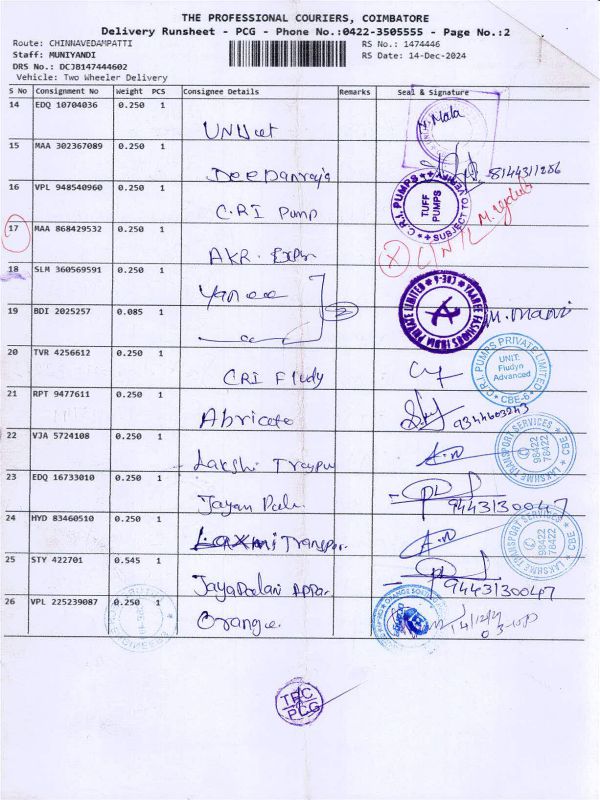 THE PROFESSIONAL COURIERS, COIMBATORE
Delivery Runsheet - PCG - Phone No.:0422-3505555 - Page No.:2
Route: CHINNAVEDAMPATTI RS No.: 1474446
Staff: MUNIYANDI RS Date: 14-Dec-2024
DRS No.: DCJ8147444602
Vehicle: Two Wheeler Delivery
S No Consignment No Weight PCS Consignee Details Remarks Seal & Signature
14 EDQ 10704036 0.250 1
M. Mala
15 MAA 302367089 0.250 1
16 VPL 948540960 0.250 1 C.RI Pump
C.R.I. PUMPS SUBJECT TO VERIFY TUFF PUMPS
17 MAA 868429532 0.250 1 AKR.
18 SLM 360569591 0.250 1
19 BDI 2025257 0.085 1 2
M. Mani
20 TVR 4256612 0.250 1 CRI Fludy
C.R.I. PUMPS PRIVATE LIMITED UNIT: Fludyn Advanced CBE-6
21 RPT 9477611 0.250 1 9344603243
22 VJA 5724108 0.250 1 Lakshi
LAKSHME TRANSPORT SERVICES CBE 98422 78422
23 EDQ 16733010 0.250 1 Jayan 9443130047
24 HYD 83460510 0.250 1 Laxmi Transpor.
LAKSHME TRANSPORT SERVICES CBE 98422 78422
25 STY 422701 0.545 1 9443130047
26 VPL 225239087 0.250 1 Orange.
14/12/24
TPC
PCG